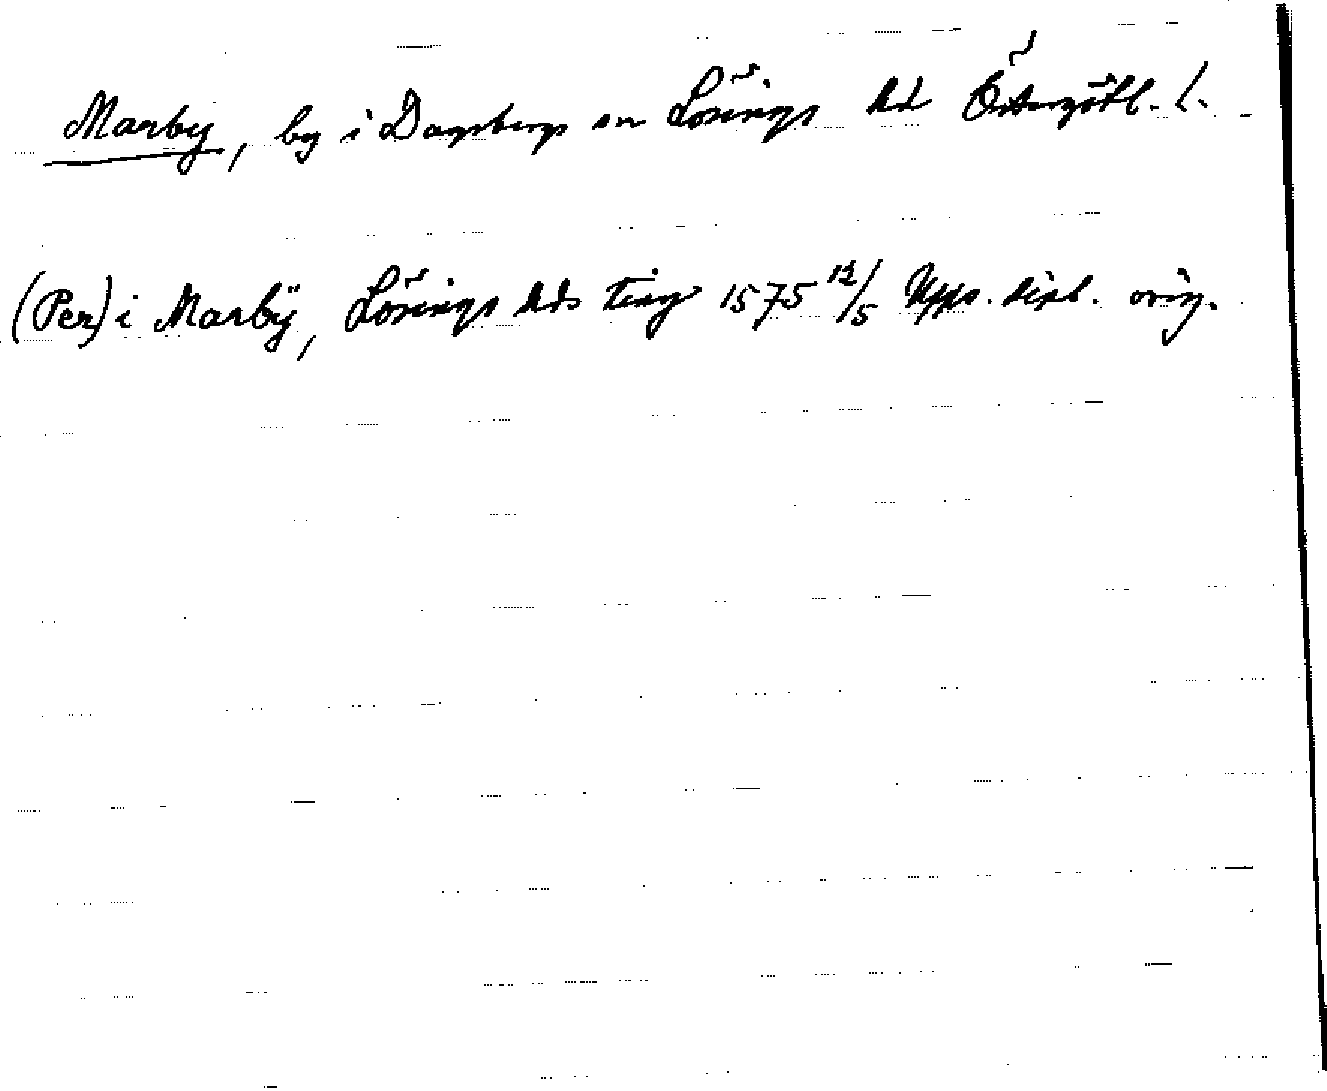 Marby, by i Dagsbergs sn Lösings hd Östergötl. l.
(Per) i Marbÿ, Lösings hds ting 1575 12/5 Upps. dipl. orig.